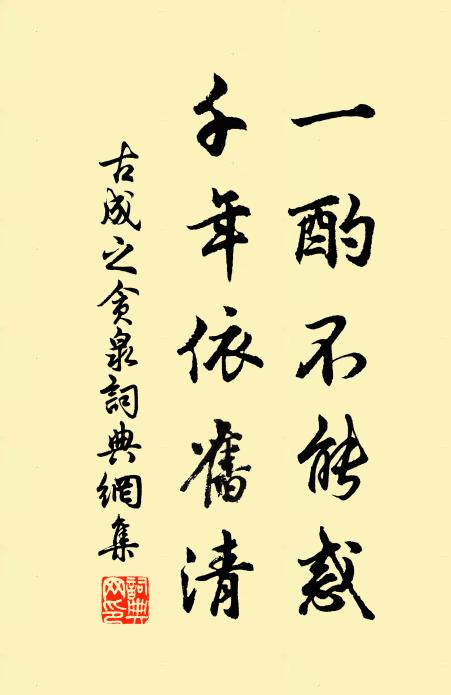 一酌不能惑
千年依舊清
古成之貪泉詞典網集
詞典網印